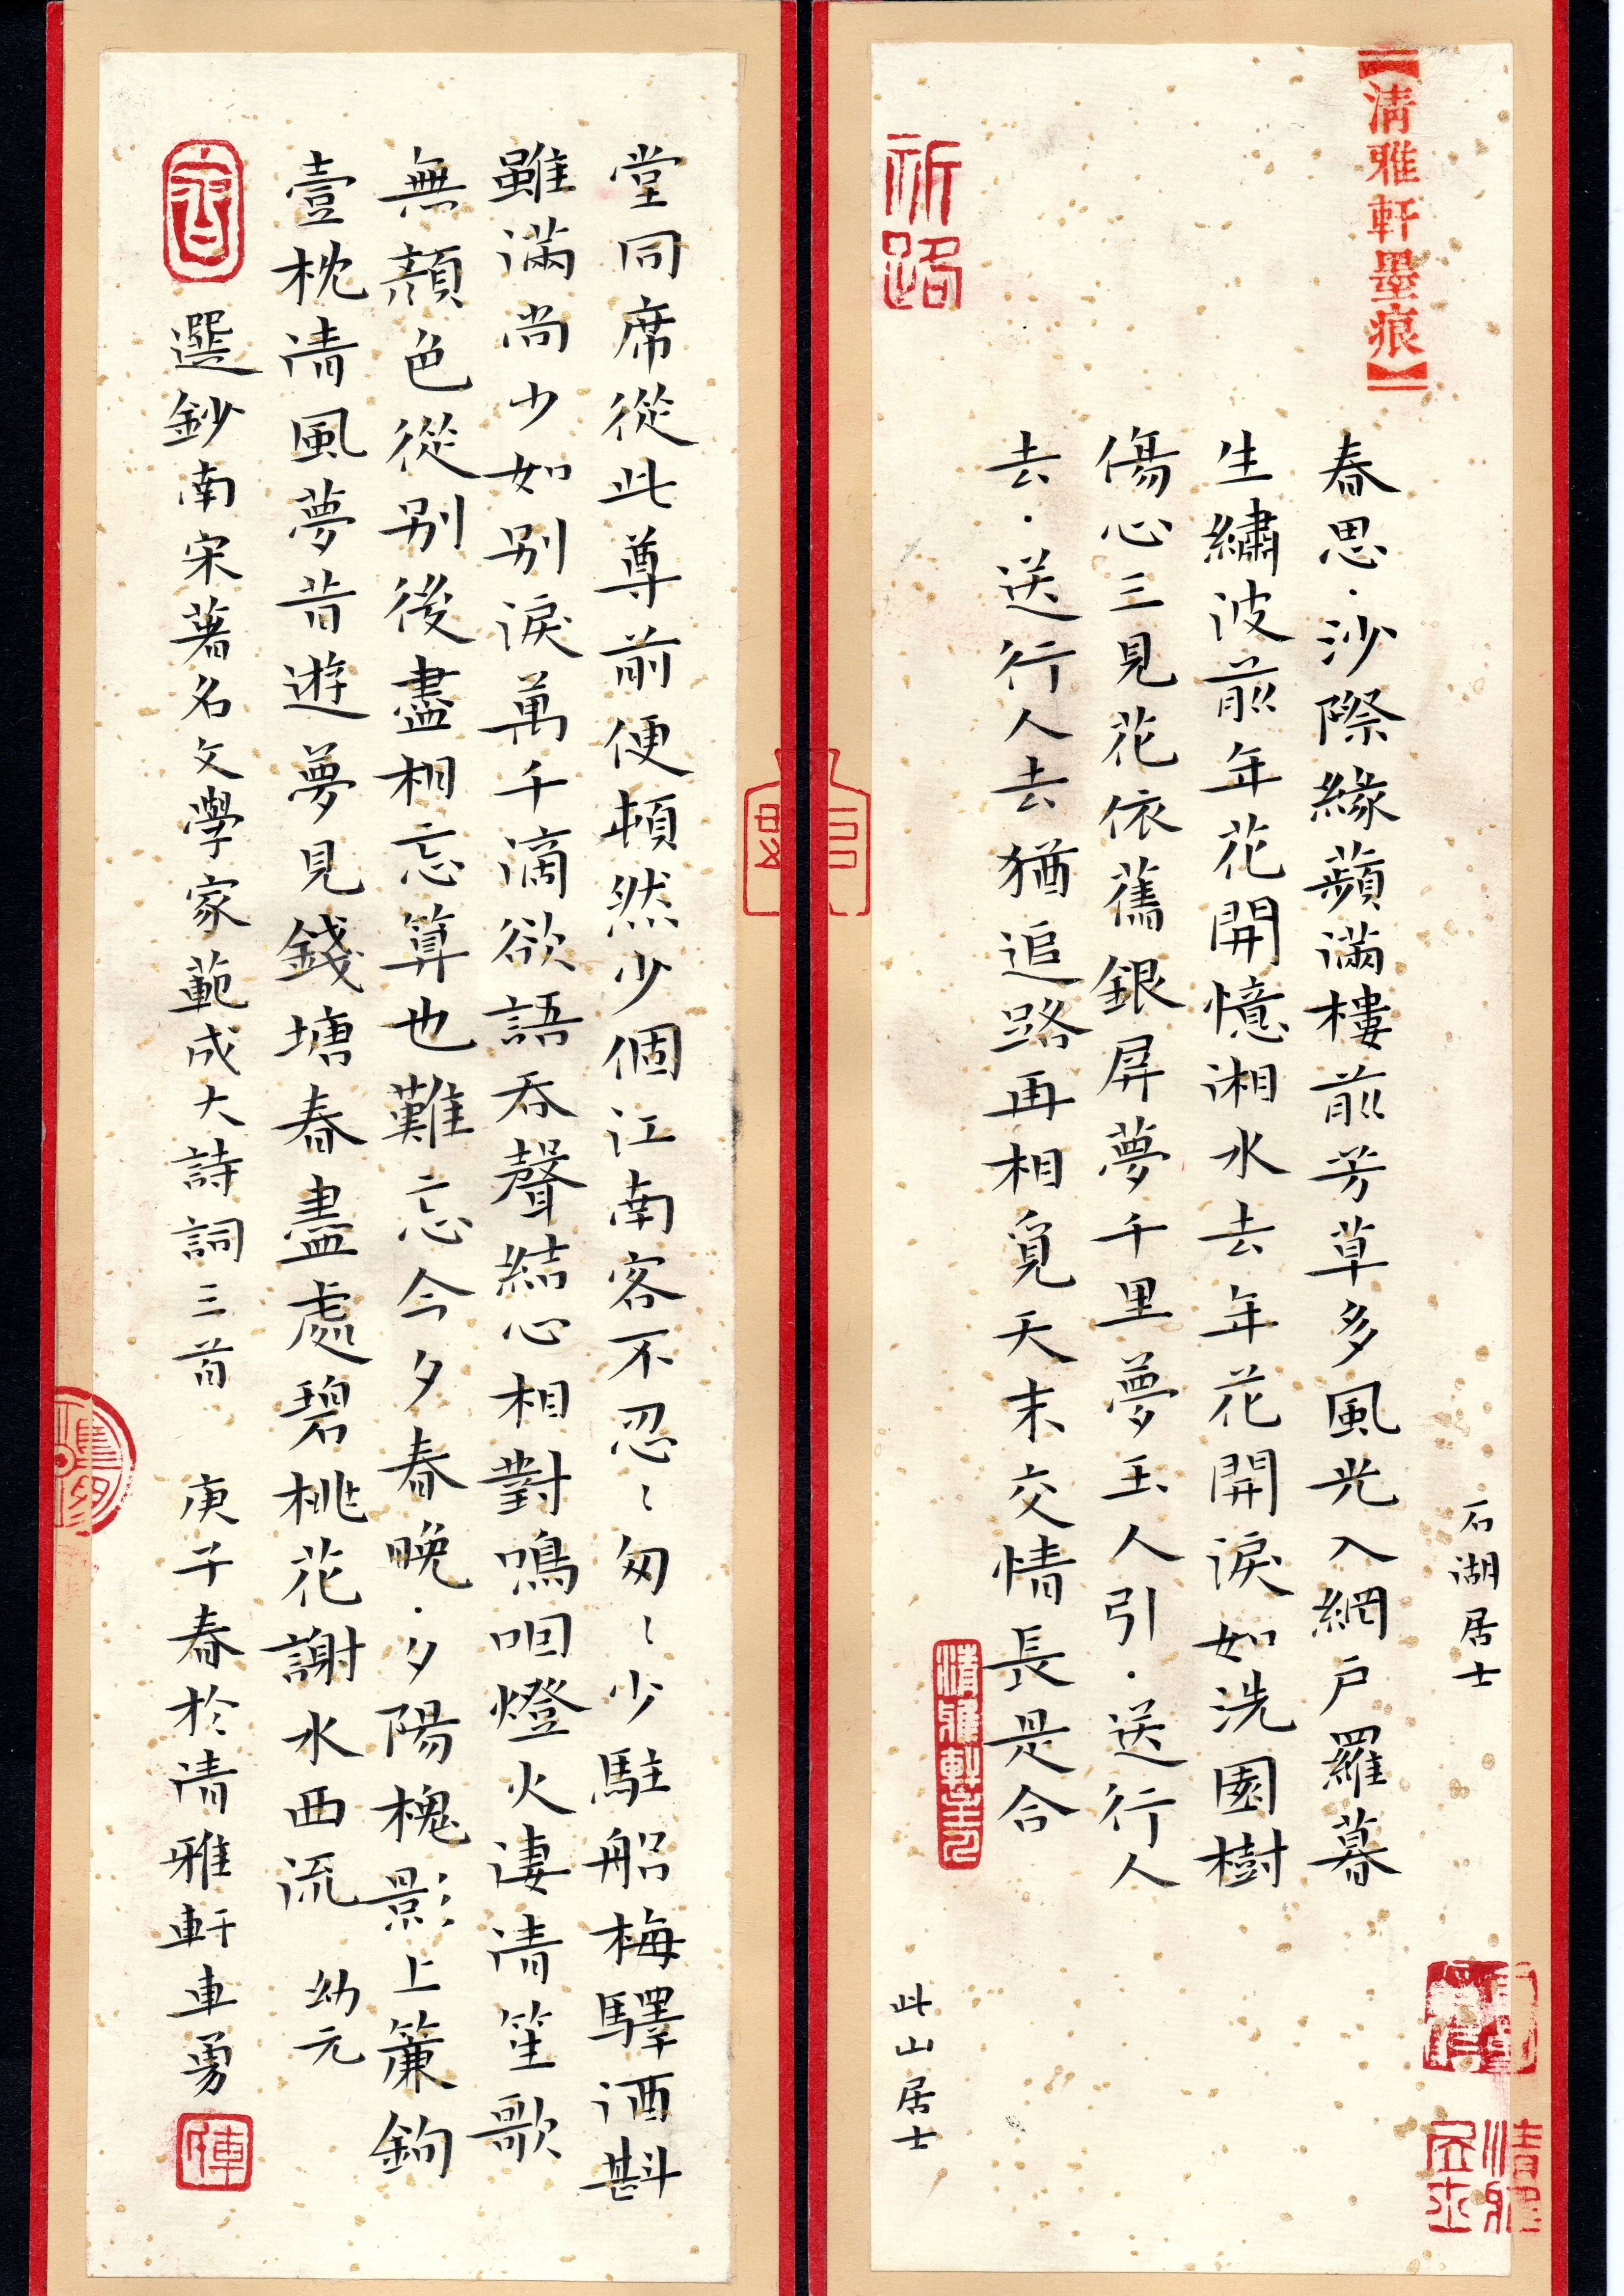 【清雅軒墨痕】
石湖居士
春思·沙際緣蘋滿樓前芳草多風光入網戶羅暮
生繡波前年花開憶湘水去年花開淚如洗園樹
傷心三見花依舊銀屏夢千里夢玉人引·送行人
去·送行人去猶追路再相覓天末交情長是合
此山居士
祈
清雅軒主
清雅居士
堂同席從此尊前便頓然少個江南客不忍〻匆〻少駐船梅驛酒斟
雖滿尚少如別淚萬千滴欲語吞聲結心相對鳴咽燈火淒清笙歌
無顏色從別後盡相忘算也難忘今夕春晚·夕陽槐影上簾鉤
壹枕清風夢昔遊夢見錢塘春盡處碧桃花謝水西流 幼元
選鈔南宋著名文學家範成大詩詞三首 庚子春於清雅軒車勇